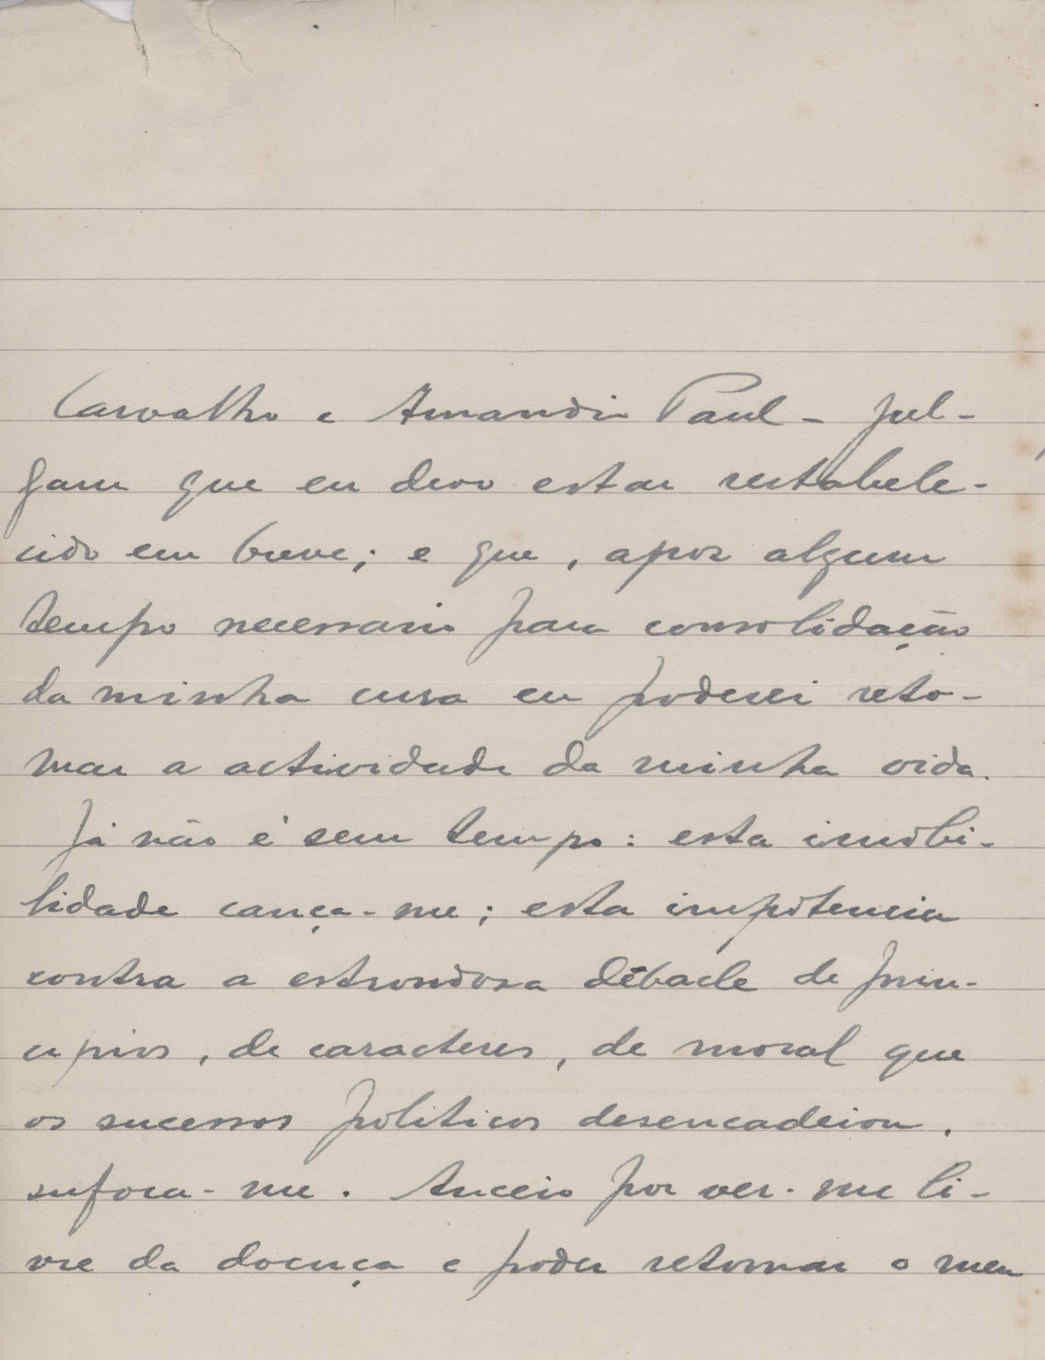 Carvalho e Amandio Paul – jul-
gam que eu devo estar restabele-
cido em breve; e que, apos algum
tempo necessario para consolidação
da minha cura eu poderei reto-
mar a actividade da minha vida.
Já não é sem tempo: esta imobi-
lidade cança-me; esta impotencia
contra a estrondosa débacle de prin-
cipios, de caracteres, de moral que
os sucessos politicos desencadeiou,
sufoca-me. Anceio por ver-me li-
vre da doença e poder retomar o meu